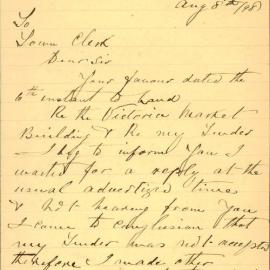 Aug 8th /98
To
Town Clerk
Dear Sir
Your favour dated the
6th instant to hand
Re the Victoria Market
Building & Re my Tender
I beg to inform You I
waited for a reply at the
usual advertized times
& Not hearing from You
I came to conclusion that
my Tender was not accepted
therefore I made other